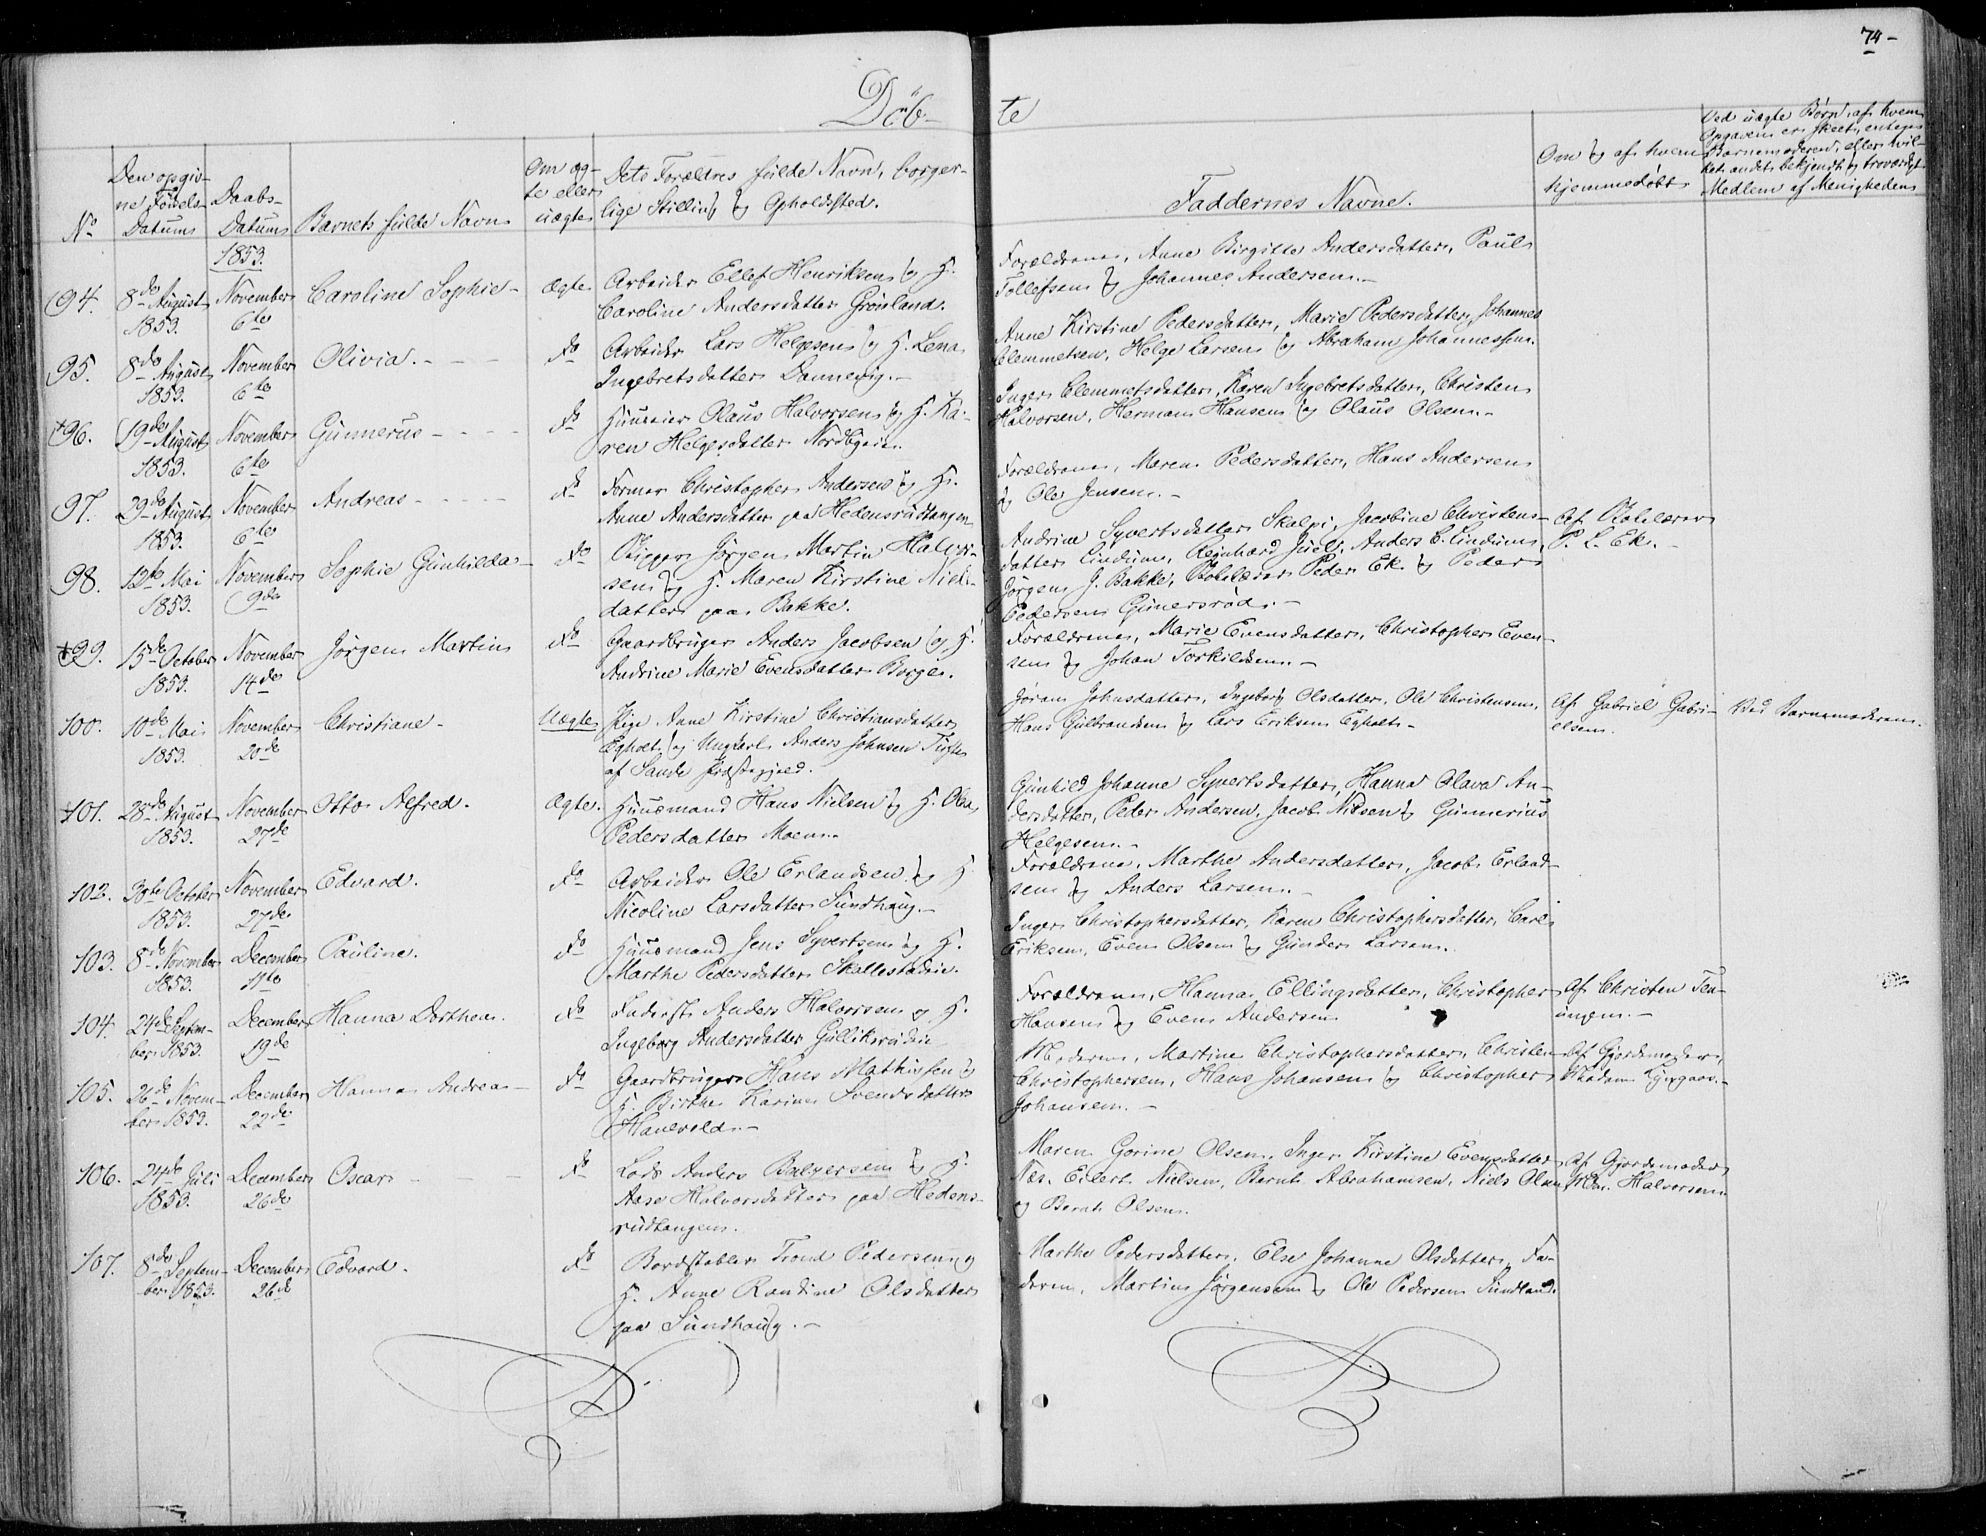 74-
Döb-
te
No
Den opgiv-
ne Fødsels-
Datum
Daabs-
Datum
1853.
Barnets fulde Navn
Om æg-
te eller
uægte
Dets Forældres fulde Navn, borger-
lige Stilling og Opholdsted.
Faddernes Navne.
Om og af hvem
hjemmedøbt
Ved uægte Børn, af hvem
Opgaven er skeet, enten
Barnemoderen, eller hvil-
ket andet bekjendt og troværdigt
Medlem af Menigheden
94.
8de August
1853.
November
6te
Caroline Sophie -
Ægte
Arbeider Ellef Henriksen og H.
Caroline Andersdatter Grønland.
Forældrene, Anne Birgitte Andersdatter, Paul
Tollefsen og Johannes Andersen.-
95.
8de August
1853.
November
6te
Olivia. - - -
do
Arbeider Lars Helgesen og H. Lena
Ingebretsdatter Dannevig.-
Anne Kirstine Pedersdatter, Marie Pedersdatter, Johannes
Clemmetsen, Helge Larsen og Abraham Johannessen.
+96.
19de August
1853.
November
6te
Gunnerus - - - -
do
Huuseier Olaus Halvorsen og H. Ka-
ren Helgesdatter
Inger Clemmetsdatter, Karen Ingebretsdatter, Christen
Halvorsen, Herman Hansen og Olaus Olsen.-
97.
29de August
1853.
November
6te
Andreas - - - -
do
Former Christopher Andersen og H.
Anne Andersdatter paa Hedensrudtangen
Forældrene, Maren Pedersdatter, Hans Andersen
og Ole Jensen. -
98.
12te Mai
1853.
November
9de
Sophie Gunhilda -
do
Skipper Jørgen Martin Halvor-
sen og H. Maren Kirstine Niels-
datter paa Bakke.
Andrine Syvertsdatter Skalpi, Jacobine Christens-
datter Lindum, Reinhard Juel, Anders C. Lindum,
Jørgen J. Bakke, Skolelærer Peder Ek. og Peder
Pedersen Gunersrød. -
Af Skolelærer
P. L. Ek. -
+99.
15de October
1853.
November
14de
Jørgen Martin
do
Gaardbruger Anders Jacobsen og H.
Andrine Marie Evensdatter Borge.
Forældrene, Marie Evensdatter, Christopher Even-
sen og Johan Torkildsen. -
100.
10de Mai
1853.
November
20de
Christiane -
Uægte
Pige Anne Kirstine Christiansdatter
Egholt og Ungkarl Anders Johnsen
af Sande Præstegjeld.
Jøran Johnsdatter, Ingeborg Olsdatter, Ole Christensen,
Hans Gulbrandsen og Lars Eriksen Egholt. -
Af Gabriel Gabri-
elsen.
Ved Barnemoderen.
+101.
28de August
1853.
November
27de
Otto Alfred.
Ægte.
Huusmand Hans Nielsen og H. Olea
Pedersdatter Moen.
Gunhild Johanne Syvertsdatter, Hanna Olava An-
dersdatter, Peder Andersen, Jacob Nilsen og Gunnerius
Helgesen. -
102.
30te October
1853.
November
27de
Edvard.
do
Arbeider Ole Erlandsen og H.
Nicoline Larsdatter Sundhaug. -
Forældrene, Marthe Andersdatter, Jacob Erland-
sen og Anders Larsen. -
103.
8de November
1853.
December
11te
Pauline.
do
Huusmand Jens Syvertsen og H.
Marthe Pedersdatter Skallestadeie.
Inger Christophersdatter, Karen Christophersdatter, Carl
Eriksen, Even Olsen og Gunder Larsen.
104.
24de Septem-
ber 1853.
December
19de
Hanna Dorthea.
do
Inderst Anders Halvorsen og H.
Ingeborg Andersdatter Gulliksrudeie
Forældrene, Hanna Ellingsdatter, Christopher
Hansen og Even Andersen
Af Christen Ten-
ungen. -
105.
26de Novem-
ber 1853.
December
22de
Hanna Andrea -
do
Gaardbruger Hans Mathiesen og
H. Birthe Karine Svendsdatter
Hanevold. -
Moderen, Martine Christophersdatter, Christen
Christophersen, Hans Johansen og Christopher
Johansen. -
Af Gjordemoder
Madam
106.
24de Juli
1853.
December
26de
Oscar - - -
do
Lods Anders Balversen og H.
Aase Halvorsdatter paa Hedens-
rudtangen.
Maren Gorine Olsen, Inger Kirstine Evensdatter
Næs. Eilert Nielsen, Bernt Abrahamsen, Niels Olsen
og Bernt Olsen.
Af Gjordemoder
Md. Halvorsen
107.
8de Septem-
ber 1853.
December
26de
Edvard.
do
Bordstabler Trond Pedersen og
H. Anne Randine Olsdatter
paa Sundhaug. -
Marthe Pedersdatter, Else Johanne Olsdatter, Fa-
deren, Martin Jørgensen og Ole Pedersen Sundland.